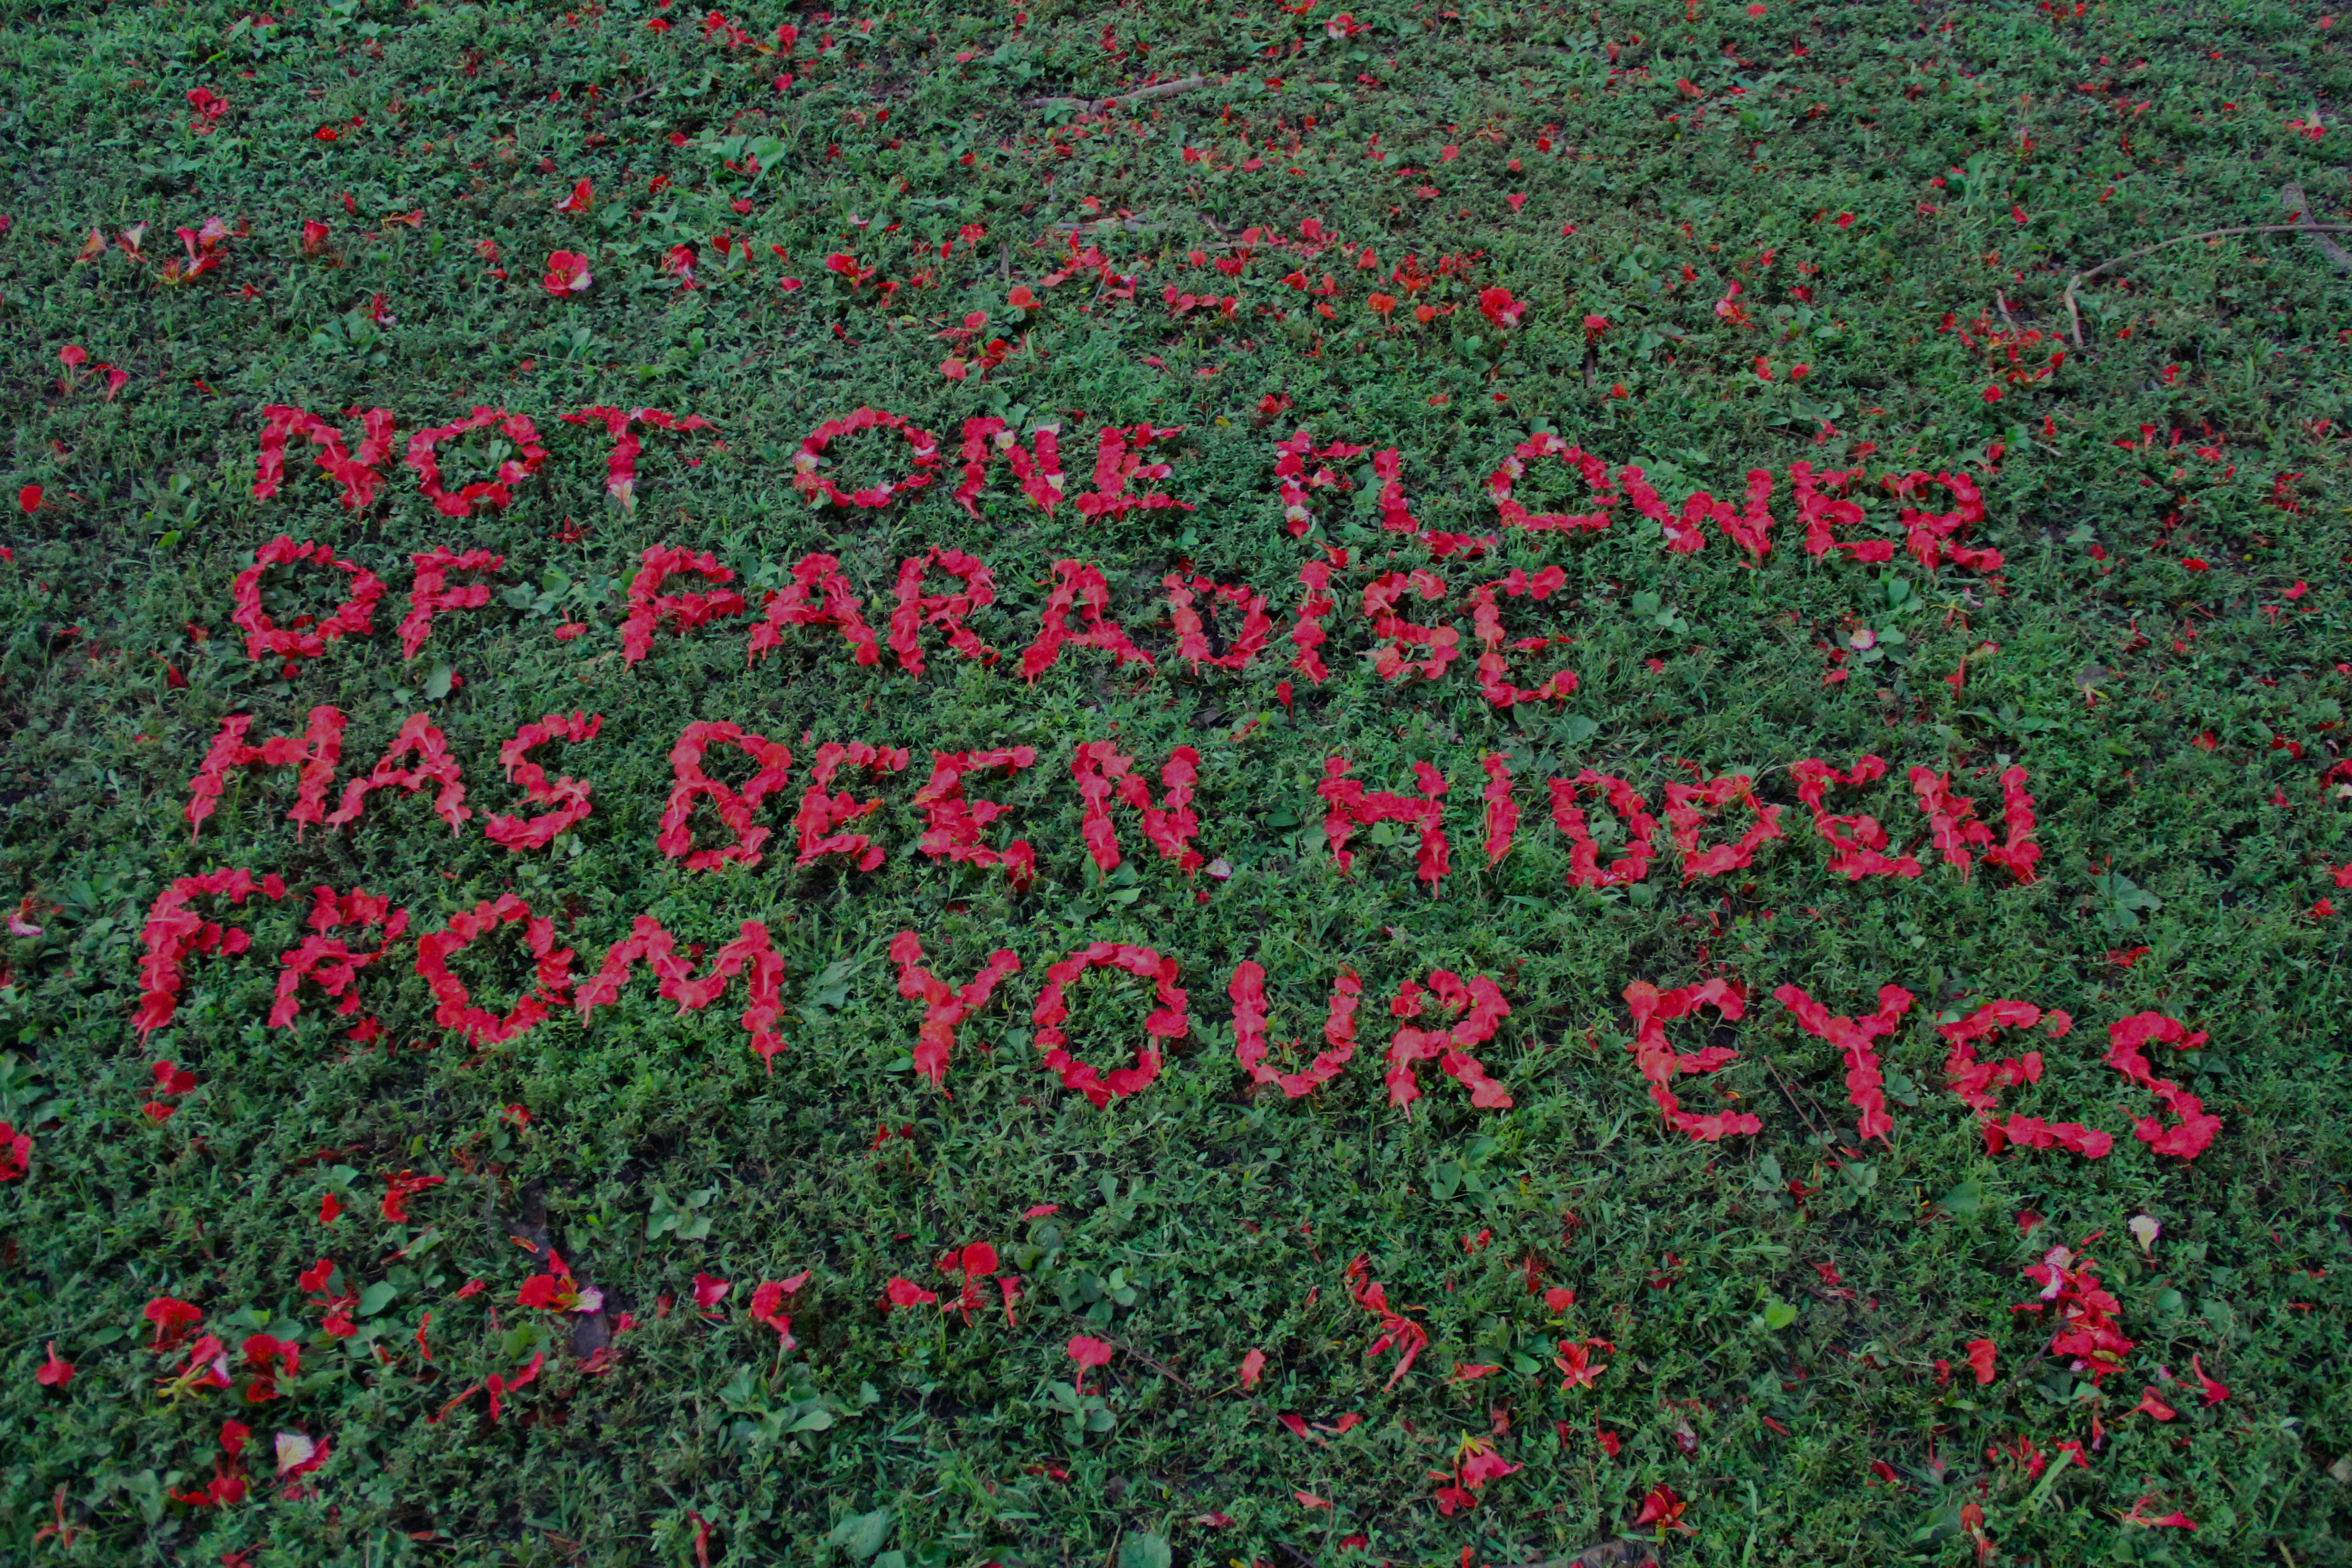 NOT ONE FLOWER
OF PARADISE
HAS BEEN HIDDEN
FROM YOUR EYES